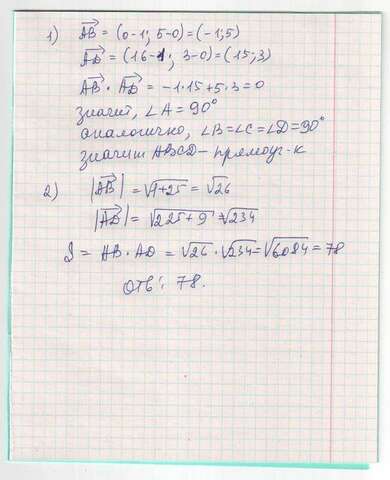 1) AB = (0-1; 5-0) = (-1; 5)
AD = (16-1; 3-0) = (15; 3)
AB · AD = -1·15+5·3=0
значит, ∠A = 90°
аналогично, ∠B=∠C=∠D=90°
значит ABCD - прямоуг-к
2) |AB| = √1+25 = √26
|AD| = √225+9 = √234
S = AB · AD = √26 · √234 = √6084 = 78
Отв: 78.